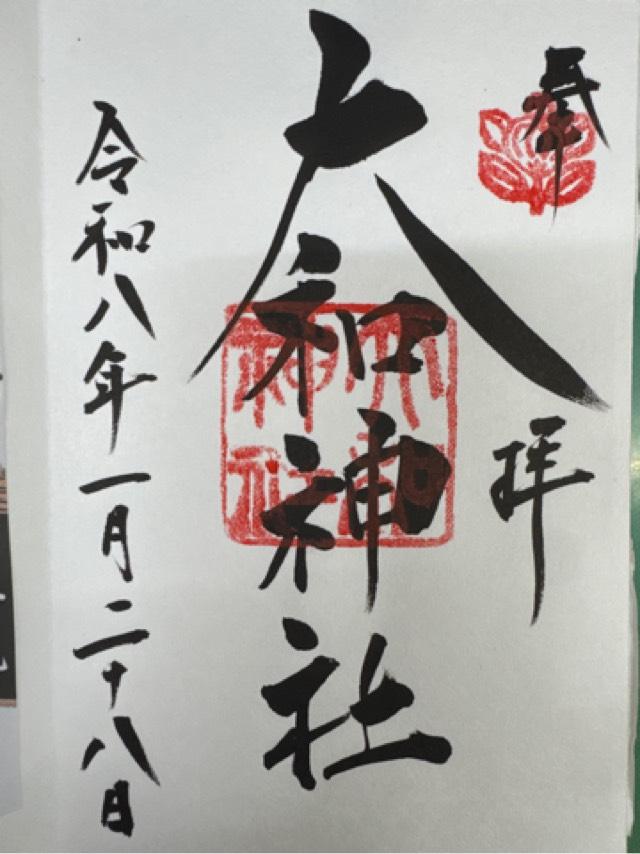 奉拝
大和神社
令和八年一月二十八日
大和
神社